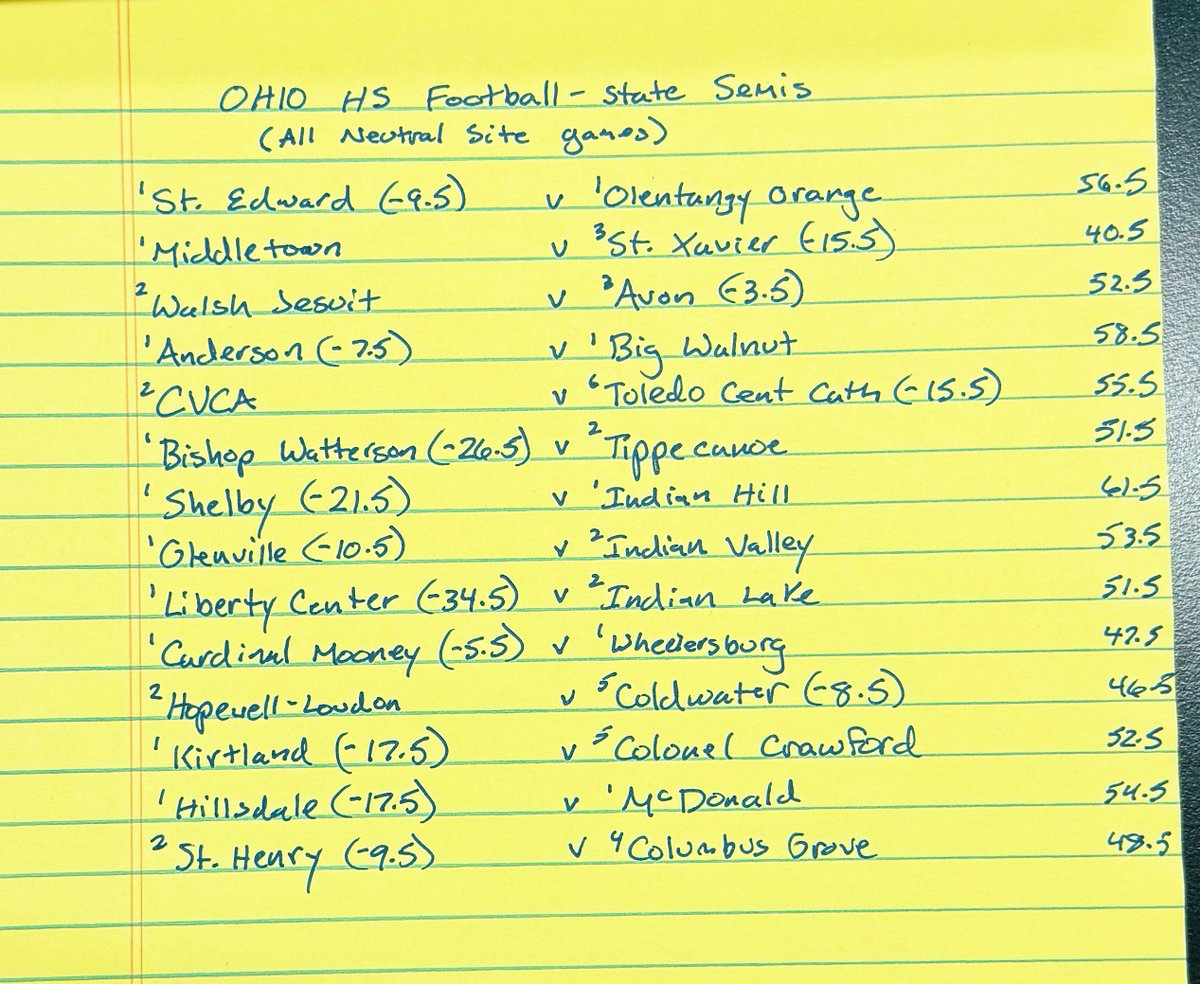 OHIO HS Football - State Semis
(All Neutral Site games)
1 St. Edward (-9.5) v 1 Olentangy Orange 56.5
1 Middletown v 3 St. Xavier (-15.5) 40.5
2 Walsh Jesuit v 3 Avon (-3.5) 52.5
1 Anderson (-7.5) v 1 Big Walnut 58.5
2 CVCA v 6 Toledo Cent Cath (-15.5) 55.5
1 Bishop Watterson (-26.5) v 2 Tippecanoe 51.5
1 Shelby (-21.5) v 1 Indian Hill 61.5
1 Glenville (-10.5) v 2 Indian Valley 53.5
1 Liberty Center (-34.5) v 2 Indian Lake 51.5
1 Cardinal Mooney (-5.5) v 1 Wheelersburg 47.5
2 Hopewell-Loudon v 5 Coldwater (-8.5) 46.5
1 Kirtland (-17.5) v 5 Colonel Crawford 52.5
1 Hillsdale (-17.5) v 1 McDonald 54.5
2 St. Henry (-9.5) v 4 Columbus Grove 48.5